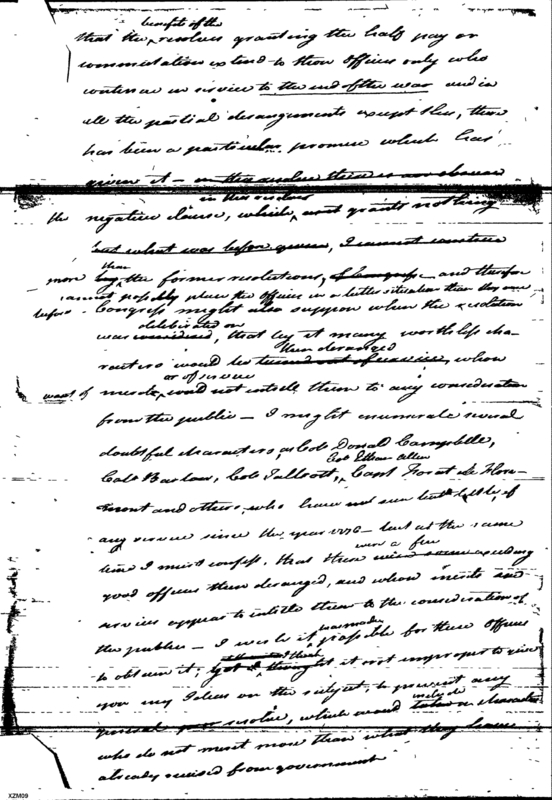 benefit of the
that the resolves granting the half pay or
commutation extend to those officers only who
continue in service to the end of the war and in
all the partial derangements except this, there
has been a particular promise which has
given it – in this resolve there is no clause
in this resolve
the negative clause, which, grants nothing
but what was before given, I cannot
than
more the former resolutions, & Congress and therefore
cannot possibly place the officers in a better situation than they were
before – Congress might also suppose when the resolution
deliberated on
was considered, that by it many worthless cha-
then deranged
racters would be turned out of service, whose
or of service
want of merit could not intitle them to any consideration
from the public – I might enumerate several
doubtful characters, as Colo Donald Campbelle,
Colo Ethan Allen
Colo Barlow, Colo, Capt
and others, who have not seen
any service since the year 1776 – but at the same
were a few
time I must confess, that there exceeding
good officers then deranged, and whose merits and
services appear to intitle them to the consideration of
was made
the public – I wish it possible for these officers
to obtain it; thought it not improper to give
you my Ideas on the subject, to prevent any
include
general resolve, which would characters
who do not merit more than what they have
already received from government
XZM09